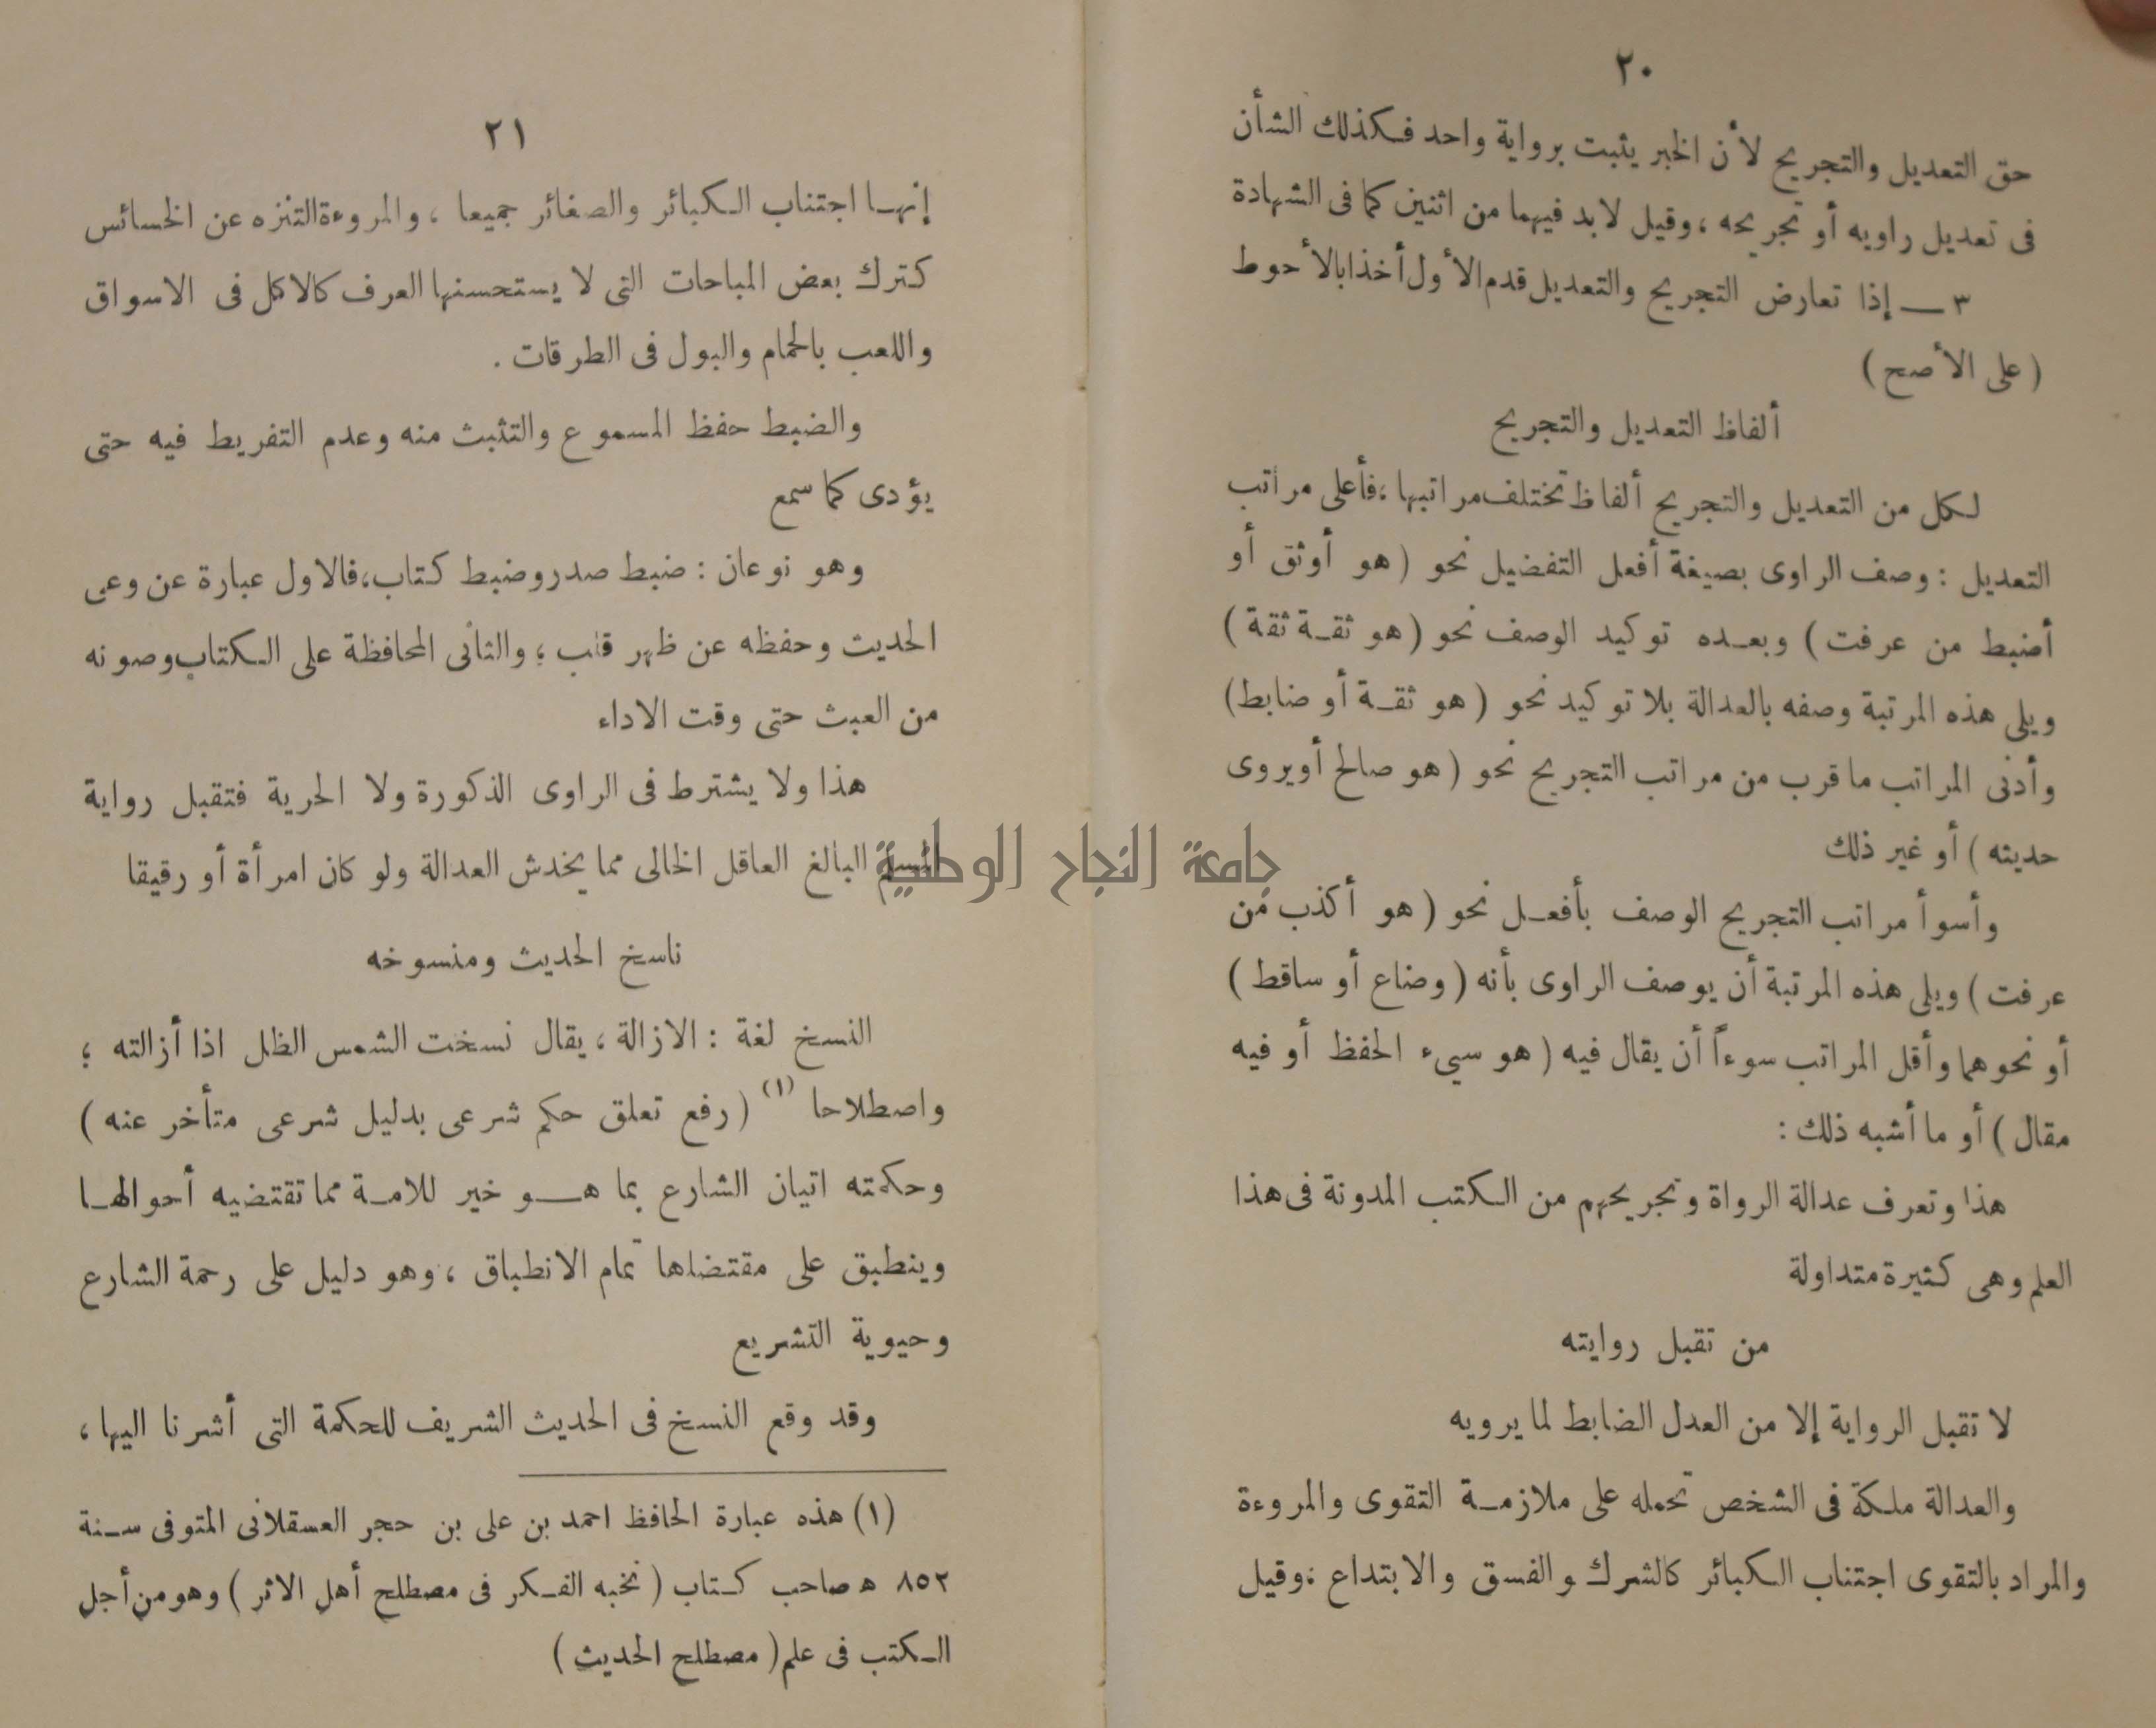 ٢٠
حق التعديل والتجريح لأن الخبر يثبت برواية واحد فكذلك الشأن
فى تعديل راويه أو تجريحه ، وقيل لابد فيهما من اثنين كما فى الشهادة
٣ — إذا تعارض التجريح والتعديل قدم الأول أخذا بالأحوط
( على الأصح )
ألفاظ التعديل والتجريح
لكل من التعديل والتجريح ألفاظ تختلف مراتبها ، فأعلى مراتب
التعديل : وصف الراوى بصيغة أفعل التفضيل نحو ( هو أوثق أو
أضبط من عرفت ) وبعده توكيد الوصف نحو ( هو ثقة ثقة )
ويلى هذه المرتبة وصفه بالعدالة بلا توكيد نحو ( هو ثقة أو ضابط )
وأدنى المراتب ما قرب من مراتب التجريح نحو ( هو صالح أو يروى
حديثه ) أو غير ذلك
وأسوأ مراتب التجريح الوصف بأفعل نحو ( هو أكذب من
عرفت ) ويلى هذه المرتبة أن يوصف الراوى بأنه ( وضاع أو ساقط )
أو نحوهما وأقل المراتب سوءاً أن يقال فيه ( هو سيىء الحفظ أو فيه
مقال ) أو ما أشبه ذلك :
هذا وتعرف عدالة الرواة وتجريحهم من الكتب المدونة فى هذا
العلم وهى كثيرة متداولة
من تقبل روايته
لا تقبل الرواية إلا من العدل الضابط لما يرويه
والعدالة ملكة فى الشخص تحمله على ملازمة التقوى والمروءة
والمراد بالتقوى اجتناب الكبائر كالشرك والفسق والابتداع ؛ وقيل
٢١
إنها اجتناب الكبائر والصغائر جميعا ، والمروءة التنزه عن الخسائس
كترك بعض المباحات التى لا يستحسنها العرف كالاكل فى الاسواق
واللعب بالحمام والبول فى الطرقات .
والضبط حفظ المسموع والتثبث منه وعدم التفريط فيه حتى
يؤدى كما سمع
وهو نوعان : ضبط صدر وضبط كتاب ، فالاول عبارة عن وعى
الحديث وحفظه عن ظهر قلب ؛ والثانى المحافظة على الكتاب وصونه
من العبث حتى وقت الاداء
هذا ولا يشترط فى الراوى الذكورة ولا الحرية فتقبل رواية
المسلم البالغ العاقل الخالى مما يخدش العدالة ولو كان امرأة أو رقيقا
جامعة النجاح الوطنية
ناسخ الحديث ومنسوخه
النسخ لغة : الازالة ، يقال نسخت الشمس الظل اذا أزالته ؛
واصطلاحا (١) ( رفع تعلق حكم شرعى بدليل شرعى متأخر عنه )
وحكمته اتيان الشارع بما هو خير للامة مما تقتضيه أحوالها
وينطبق على مقتضاها تمام الانطباق ، وهو دليل على رحمة الشارع
وحيوية التشريع
وقد وقع النسخ فى الحديث الشريف للحكمة التى أشرنا اليها ،
(١) هذه عبارة الحافظ احمد بن على بن حجر العسقلانى المتوفى سنة
٨٥٢ ه صاحب كتاب ( نخبه الفكر فى مصطلح أهل الاثر ) وهو من أجل
الكتب فى علم ( مصطلح الحديث )